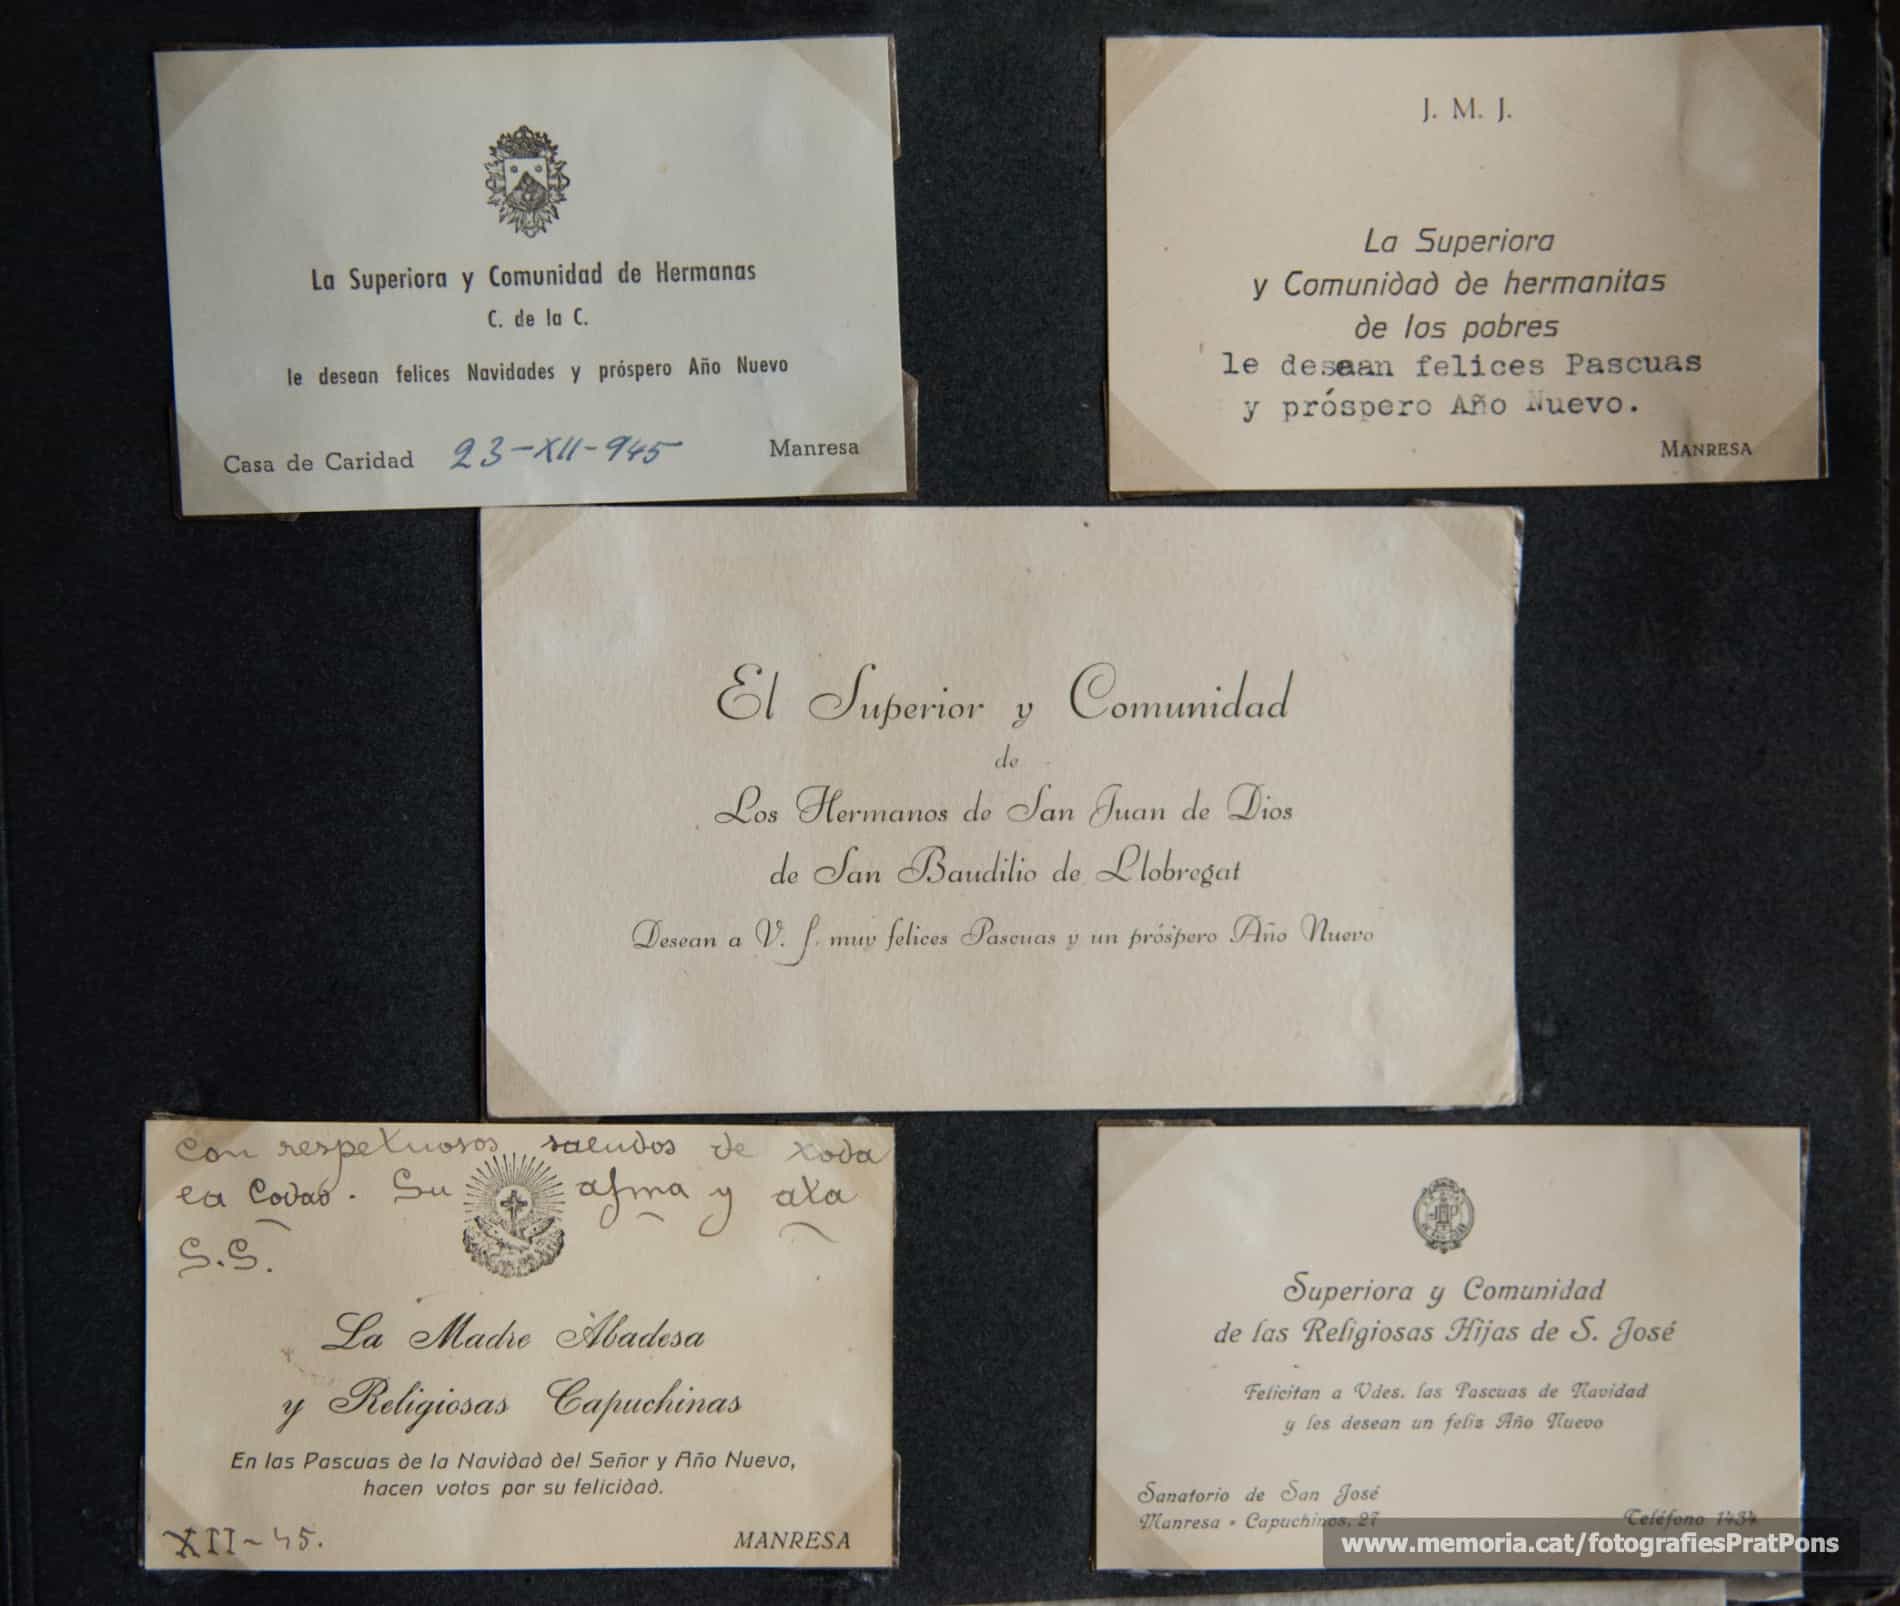 La Superiora y Comunidad de Hermanas
C. de la C.
le desean felices Navidades y próspero Año Nuevo
Casa de Caridad 23-XII-945 Manresa
J. M. J.
La Superiora
y Comunidad de hermanitas
de los pobres
le desean felices Pascuas
y próspero Año Nuevo.
MANRESA
El Superior y Comunidad
de
Los Hermanos de San Juan de Dios
de San Baudilio de Llobregat
Desean a V. f. muy felices Pascuas y un próspero Año Nuevo
Con respetuosos saludos de toda
la Codad. Su afma y ata
S.S.
La Madre Abadesa
y Religiosas Capuchinas
En las Pascuas de la Navidad del Señor y Año Nuevo,
hacen votos por su felicidad.
XII-45. MANRESA
Superiora y Comunidad
de las Religiosas Hijas de S. José
Felicitan a Vdes. las Pascuas de Navidad
y les desean un feliz Año Nuevo
Sanatorio de San José
Manresa - Capuchinos, 27 Teléfono 1434
www.memoria.cat/fotografiesPratPons